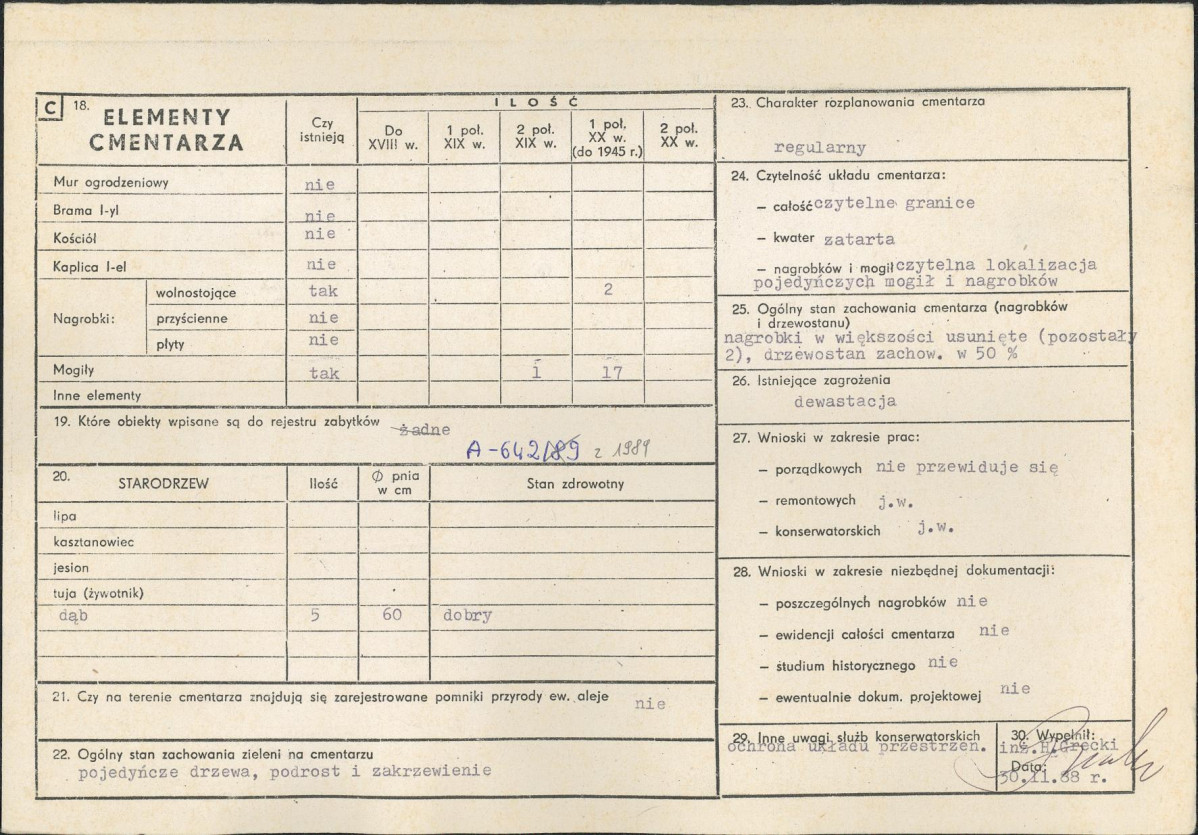 C 18. ELEMENTY CMENTARZA
Czy istnieją
ILOŚĆ
Do XVIII w.
1 poł. XIX w.
2 poł. XIX w.
1 poł. XX w. (do 1945 r.)
2 poł. XX w.
Mur ogrodzeniowy nie
Brama I-yl nie
Kościół nie
Kaplica I-el nie
Nagrobki:
wolnostojące tak 2
przyścienne nie
płyty nie
Mogiły tak 1 17
Inne elementy
19. Które obiekty wpisane są do rejestru zabytków żadne
A-642/89 z 1989
20. STARODRZEW Ilość Ø pnia w cm Stan zdrowotny
lipa
kasztanowiec
jesion
tuja (żywotnik)
dąb 5 60 dobry
21. Czy na terenie cmentarza znajdują się zarejestrowane pomniki przyrody ew. aleje nie
22. Ogólny stan zachowania zieleni na cmentarzu
pojedyńcze drzewa, podrost i zakrzewienie
23. Charakter rozplanowania cmentarza
regularny
24. Czytelność układu cmentarza:
— całość czytelne granice
— kwater zatarta
— nagrobków i mogił czytelna lokalizacja
pojedyńczych mogił i nagrobków
25. Ogólny stan zachowania cmentarza (nagrobków
i drzewostanu)
nagrobki w większości usunięte (pozostały
2), drzewostan zachow. w 50 %
26. Istniejące zagrożenia
dewastacja
27. Wnioski w zakresie prac:
— porządkowych nie przewiduje się
— remontowych j.w.
— konserwatorskich j.w.
28. Wnioski w zakresie niezbędnej dokumentacji:
— poszczególnych nagrobków nie
— ewidencji całości cmentarza nie
— studium historycznego nie
— ewentualnie dokum. projektowej nie
29. Inne uwagi służb konserwatorskich
ochrona układu przestrzen.
30. Wypełnił:
inż.H.Grecki
Data:
30.11.88 r.